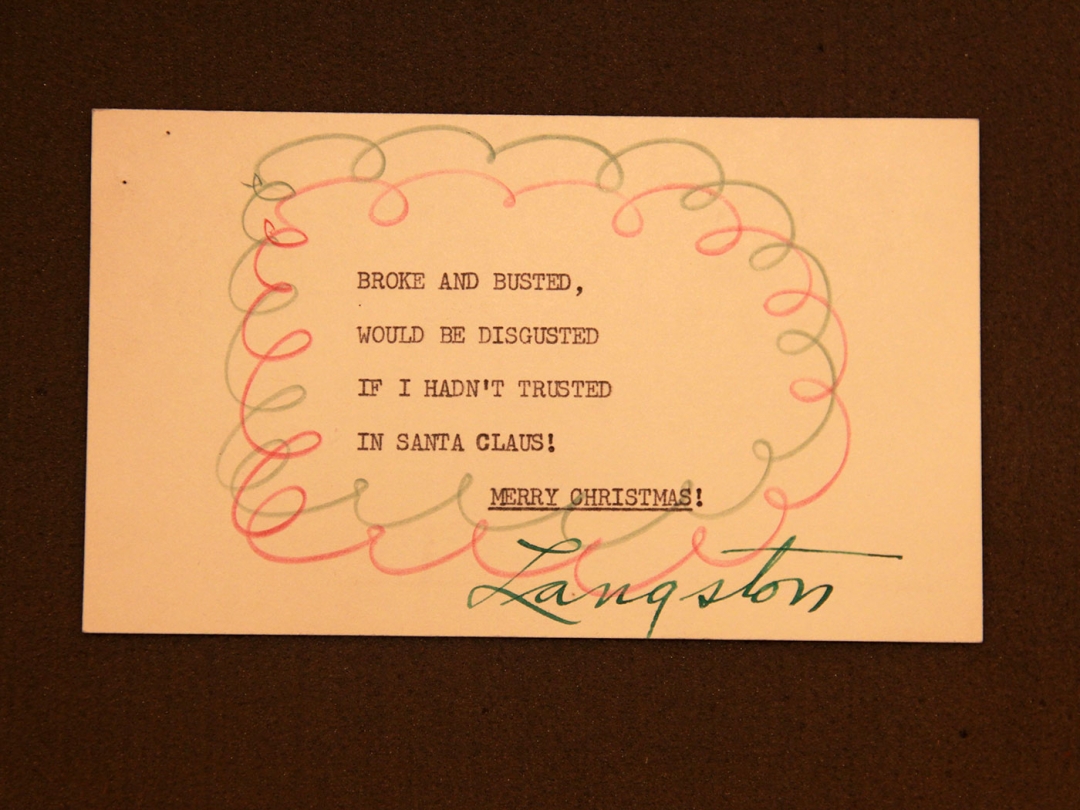 BROKE AND BUSTED,
WOULD BE DISGUSTED
IF I HADN'T TRUSTED
IN SANTA CLAUS!
MERRY CHRISTMAS!
Langston